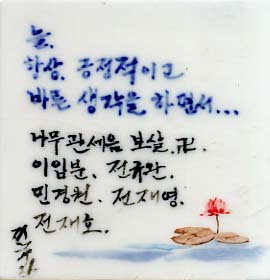 늘,
항상, 긍정적이고
바른 생각을 하면서...
나무관세음 보살. 卍.
이입분. 전규완.
민경원. 전재영.
전재호.